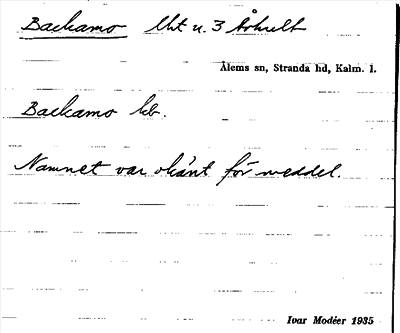 Backamo lht u. 3 Århult
Ålems sn, Stranda hd, Kalm. l.
Backamo hb.
Namnet var okänt för meddel.
Ivar Modéer 1935